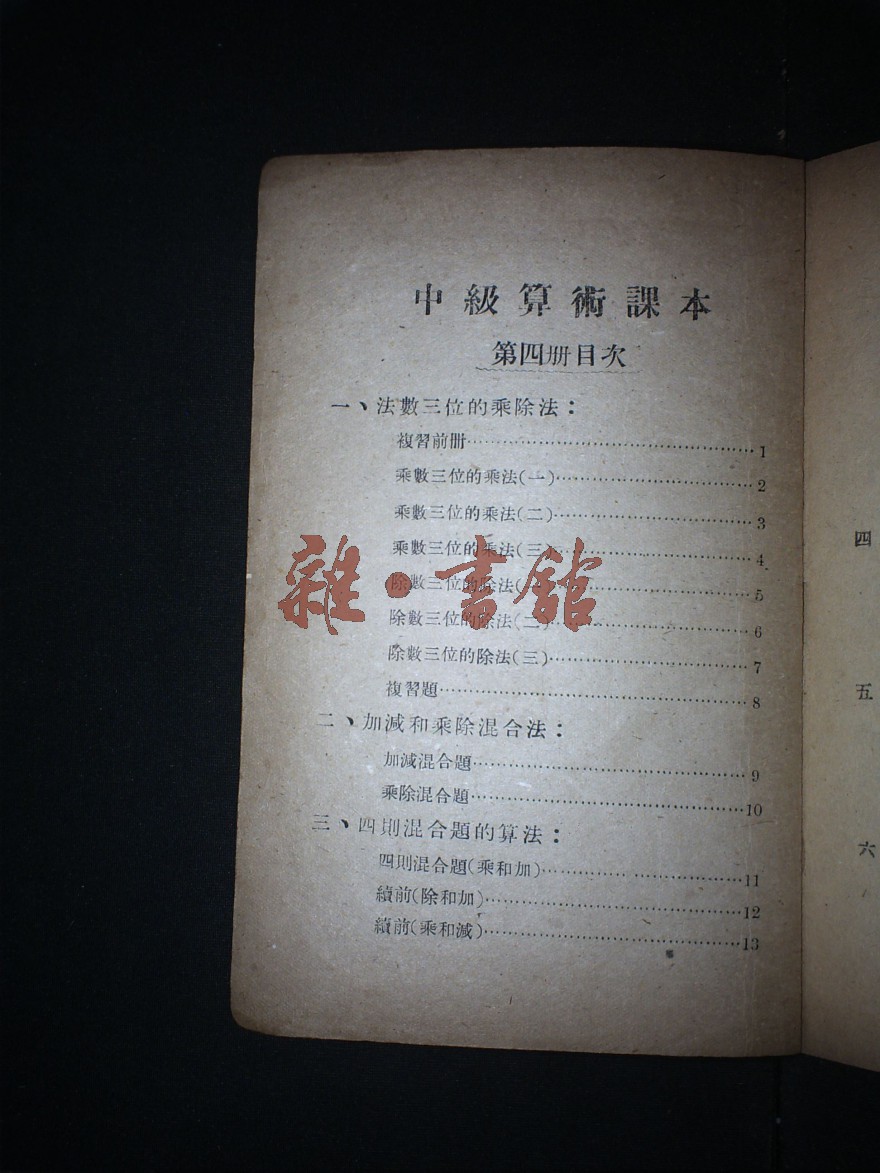 中級算術課本
第四册目次
一、法數三位的乘除法：
複習前册……1
乘數三位的乘法(一)……2
乘數三位的乘法(二)……3
乘數三位的乘法(三)……4
除數三位的除法……5
除數三位的除法(二)……6
除數三位的除法(三)……7
複習題……8
二、加減和乘除混合法：
加減混合題……9
乘除混合題……10
三、四則混合題的算法：
四則混合題(乘和加)……11
續前(除和加)……12
續前(乘和減)……13
雜·書館
四
五
六